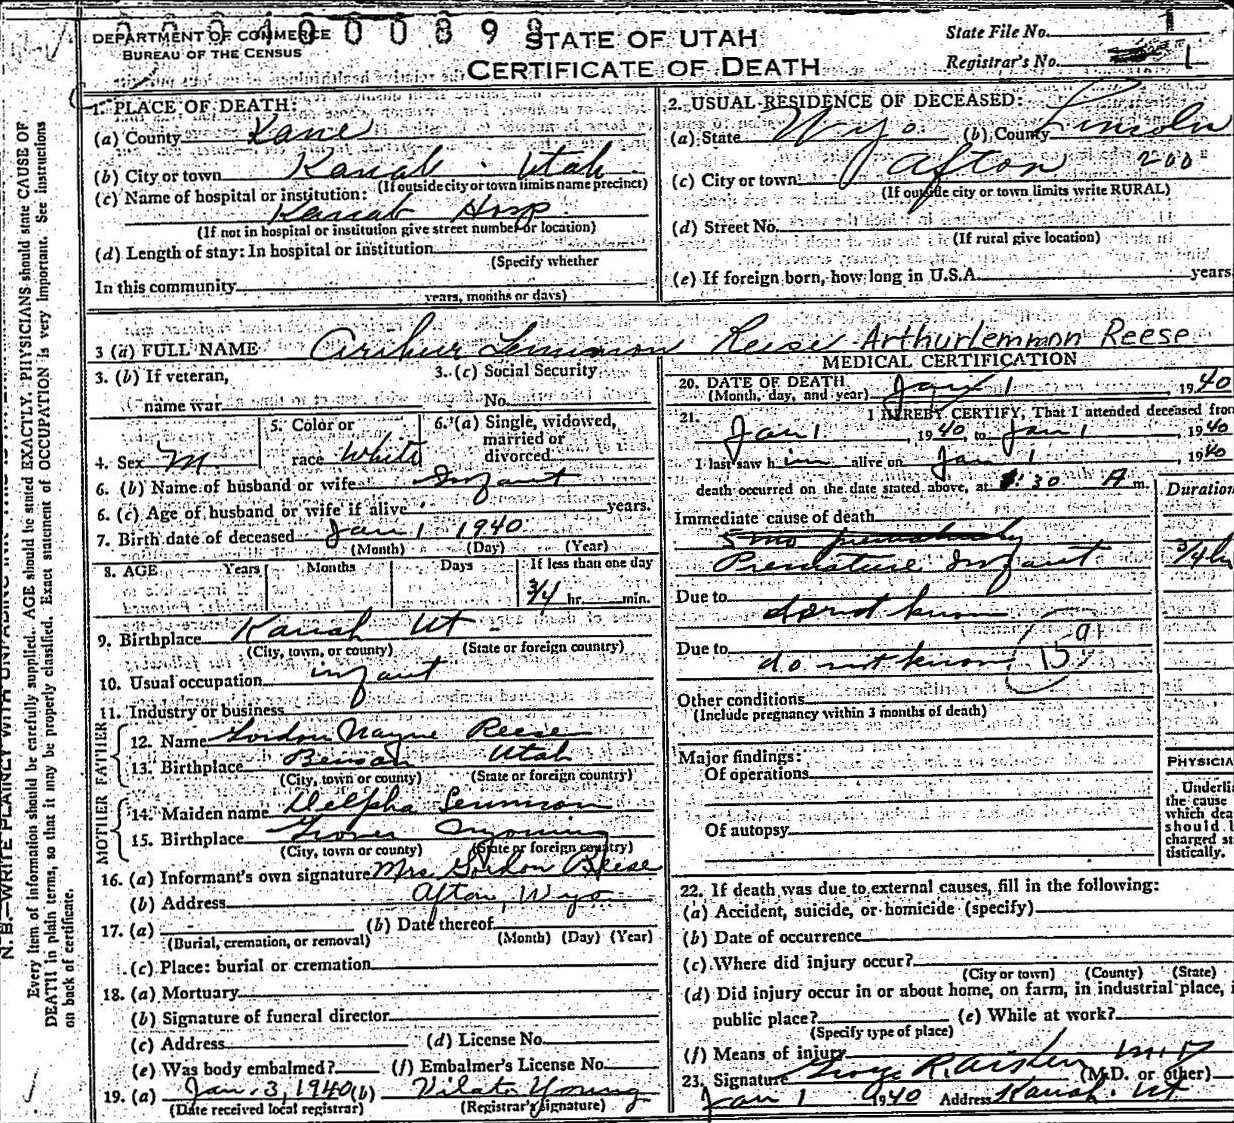 DEPARTMENT OF COMMERCE
BUREAU OF THE CENSUS
STATE OF UTAH
CERTIFICATE OF DEATH
State File No. 1
Registrar's No. 1
1. PLACE OF DEATH:
(a) County Kane
(b) City or town Kanab - Utah
(If outside city or town limits name precinct)
(c) Name of hospital or institution:
Kanab Hosp.
(If not in hospital or institution give street number or location)
(d) Length of stay: In hospital or institution
(Specify whether
In this community
years, months or days)
2. USUAL RESIDENCE OF DECEASED:
(a) State Wyo. (b) County Lincoln
(c) City or town Afton 200
(If outside city or town limits write RURAL)
(d) Street No.
(If rural give location)
(e) If foreign born, how long in U.S.A. years
3 (a) FULL NAME Arthur Lemmon Reese Arthur Lemmon Reese
3. (b) If veteran,
name war
3. (c) Social Security
No.
4. Sex M.
5. Color or
race White
6. (a) Single, widowed,
married or
divorced
6. (b) Name of husband or wife Infant
6. (c) Age of husband or wife if alive years.
7. Birth date of deceased Jan 1 1940
(Month) (Day) (Year)
8. AGE Years Months Days If less than one day
3/4 hr. min.
9. Birthplace Kanab Ut -
(City, town, or county) (State or foreign country)
10. Usual occupation infant
11. Industry or business
FATHER
12. Name Gordon Wayne Reese
13. Birthplace Benson Utah
(City, town or county) (State or foreign country)
MOTHER
14. Maiden name Delpha Lemmon
15. Birthplace Grover Wyoming
(City, town or county) (State or foreign country)
16. (a) Informant's own signature Mrs Gordon Reese
(b) Address Afton, Wyo
17. (a) (b) Date thereof
(Burial, cremation, or removal) (Month) (Day) (Year)
(c) Place: burial or cremation
18. (a) Mortuary
(b) Signature of funeral director
(c) Address (d) License No.
(e) Was body embalmed? (f) Embalmer's License No.
19. (a) Jan. 3, 1940 (b) Vilate Young
(Date received local registrar) (Registrar's signature)
MEDICAL CERTIFICATION
20. DATE OF DEATH Jan 1, 1940
(Month, day, and year)
21. I HEREBY CERTIFY, That I attended deceased from
Jan 1, 1940, to Jan 1, 1940
I last saw him alive on Jan 1, 1940
death occurred on the date stated above, at :30 A m.
Duration
Immediate cause of death
5 mo
Premature Infant 3/4 hr
Due to do not know
Due to do not know 159
Other conditions
(Include pregnancy within 3 months of death)
Major findings:
Of operations
Of autopsy
PHYSICIA
Underli
the cause
which dea
should b
charged st
tistically.
22. If death was due to external causes, fill in the following:
(a) Accident, suicide, or homicide (specify)
(b) Date of occurrence
(c) Where did injury occur?
(City or town) (County) (State)
(d) Did injury occur in or about home, on farm, in industrial place, i
public place? (e) While at work?
(Specify type of place)
(f) Means of injury
23. Signature George R. Aiken M.D
(M.D. or other)
Jan 1 1940 Address Kanab. Ut
Every item of information should be carefully supplied. AGE should be stated EXACTLY. PHYSICIANS should state CAUSE OF
DEATH in plain terms, so that it may be properly classified. Exact statement of OCCUPATION is very important. See Instructions
on back of certificate.